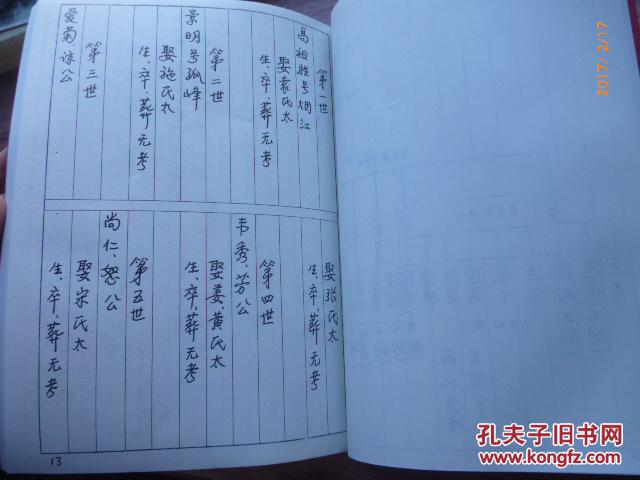 第一世
高祖胜号烟江
娶袁氏太
生、卒、葬无考
第二世
景明号孤峰
娶施氏太
生、卒、葬无考
第三世
爱菊、谅公
娶张氏太
生、卒、葬无考
第四世
韦秀、芳公
娶姜、黄氏太
生、卒、葬无考
第五世
尚仁、恕公
娶宋氏太
生、卒、葬无考
13
2017/2/17
孔夫子旧书网
www.kongfz.com